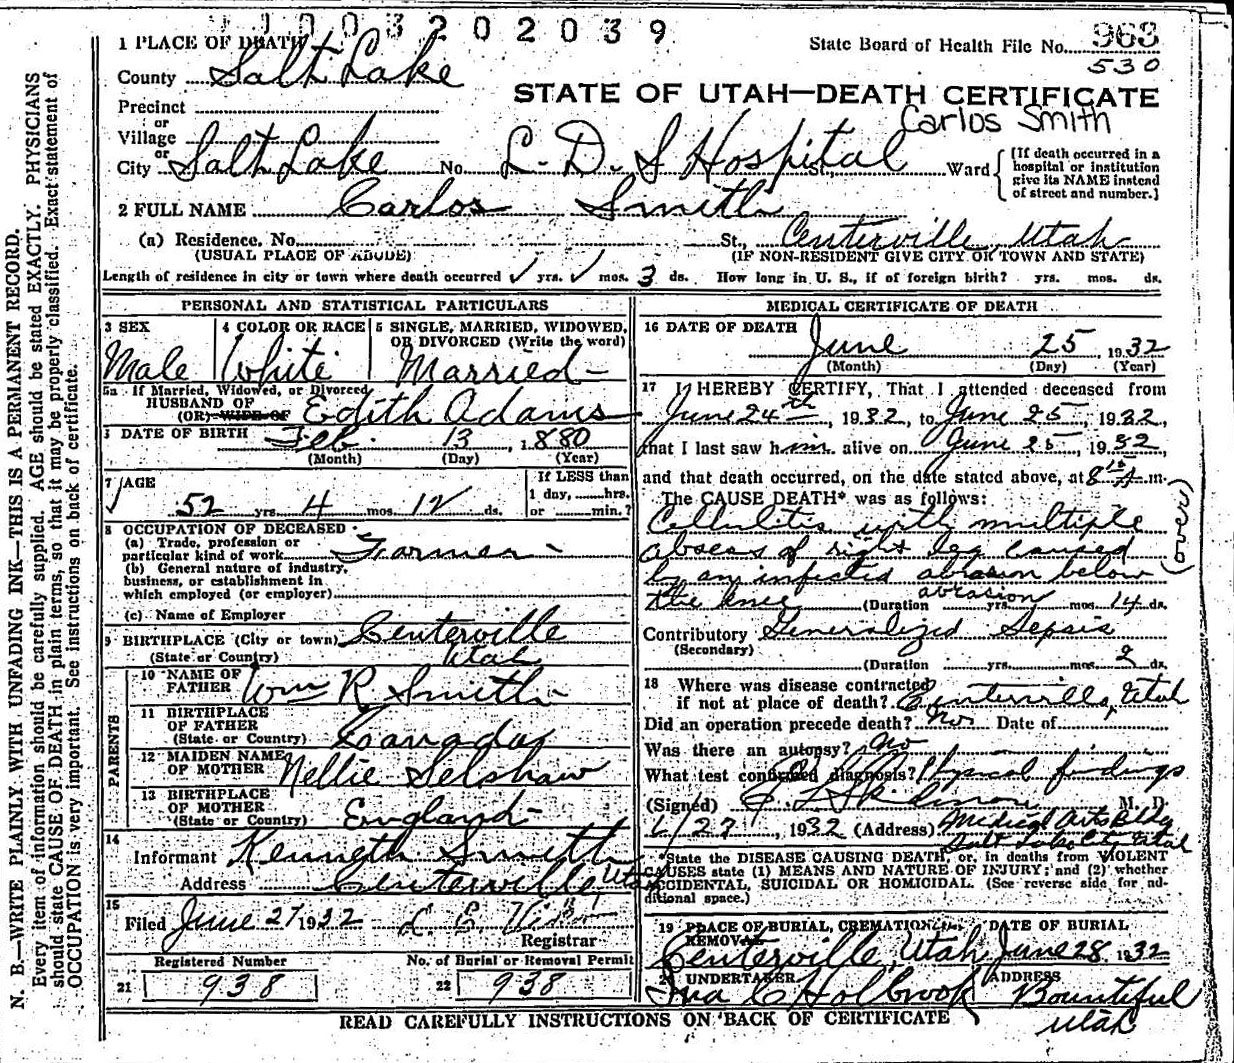 1003202039
State Board of Health File No. 963
530
1 PLACE OF DEATH
County Salt Lake
STATE OF UTAH—DEATH CERTIFICATE
Carlos Smith
Precinct
or
Village
or
City Salt Lake No. L. D. S Hospital St., Ward
[If death occurred in a hospital or institution give its NAME instead of street and number.]
2 FULL NAME Carlos Smith
(a) Residence. No. St., Centerville, Utah
(USUAL PLACE OF ABODE) (IF NON-RESIDENT GIVE CITY OR TOWN AND STATE)
Length of residence in city or town where death occurred yrs. mos. 3 ds. How long in U. S., if of foreign birth? yrs. mos. ds.
PERSONAL AND STATISTICAL PARTICULARS
3 SEX
Male
4 COLOR OR RACE
White
5 SINGLE, MARRIED, WIDOWED, OR DIVORCED (Write the word)
Married
5a If Married, Widowed, or Divorced
HUSBAND OF
(OR) WIFE OF Edith Adams
DATE OF BIRTH Feb. 13, 1880
(Month) (Day) (Year)
7 AGE
52 yrs 4 mos. 12 ds.
If LESS than
1 day, hrs.
or min.?
8 OCCUPATION OF DECEASED
(a) Trade, profession or
particular kind of work Farmer
(b) General nature of industry,
business, or establishment in
which employed (or employer)
(c) Name of Employer
9 BIRTHPLACE (City or town) Centerville
(State or Country) Utah
PARENTS
10 NAME OF FATHER Wm R Smith
11 BIRTHPLACE OF FATHER
(State or Country) Canada
12 MAIDEN NAME OF MOTHER Nellie Selshaw
13 BIRTHPLACE OF MOTHER
(State or Country) England
14
Informant Kenneth Smith
Address Centerville, Utah
15
Filed June 27 1932
Registrar
Registered Number
21 938
No. of Burial or Removal Permit
22 938
MEDICAL CERTIFICATE OF DEATH
16 DATE OF DEATH June 25 1932
(Month) (Day) (Year)
17 I HEREBY CERTIFY, That I attended deceased from
June 24th, 1932, to June 25, 1932,
that I last saw him alive on June 25, 1932,
and that death occurred, on the date stated above, at 8 15 A m.
The CAUSE DEATH* was as follows:
Cellulitis with multiple
absess of right leg caused
by an infected abrasion below
abrasion
the knee (Duration yrs. mos. 14 ds.
(over)
Contributory Generalized Sepsis
(Secondary)
(Duration yrs. mos. 2 ds.
18 Where was disease contracted
if not at place of death? Centerville, Utah
Did an operation precede death? No. Date of
Was there an autopsy? No
What test confirmed diagnosis? Physical findings
(Signed) M. D.
6/27, 1932 (Address) Medical Arts Bldg
Salt Lake City Utah
*State the DISEASE CAUSING DEATH, or, in deaths from VIOLENT
CAUSES state (1) MEANS AND NATURE OF INJURY; and (2) whether
ACCIDENTAL, SUICIDAL OR HOMICIDAL. (See reverse side for additional space.)
19 PLACE OF BURIAL, CREMATION, OR REMOVAL DATE OF BURIAL
Centerville, Utah June 28, 1932
20 UNDERTAKER ADDRESS
Ina C Holbrook Bountiful
Utah
READ CAREFULLY INSTRUCTIONS ON BACK OF CERTIFICATE
N. B.—WRITE PLAINLY WITH UNFADING INK—THIS IS A PERMANENT RECORD.
Every item of information should be carefully supplied. AGE should be stated EXACTLY. PHYSICIANS
should state CAUSE OF DEATH in plain terms, so that it may be properly classified. Exact statement of
OCCUPATION is very important. See instructions on back of certificate.